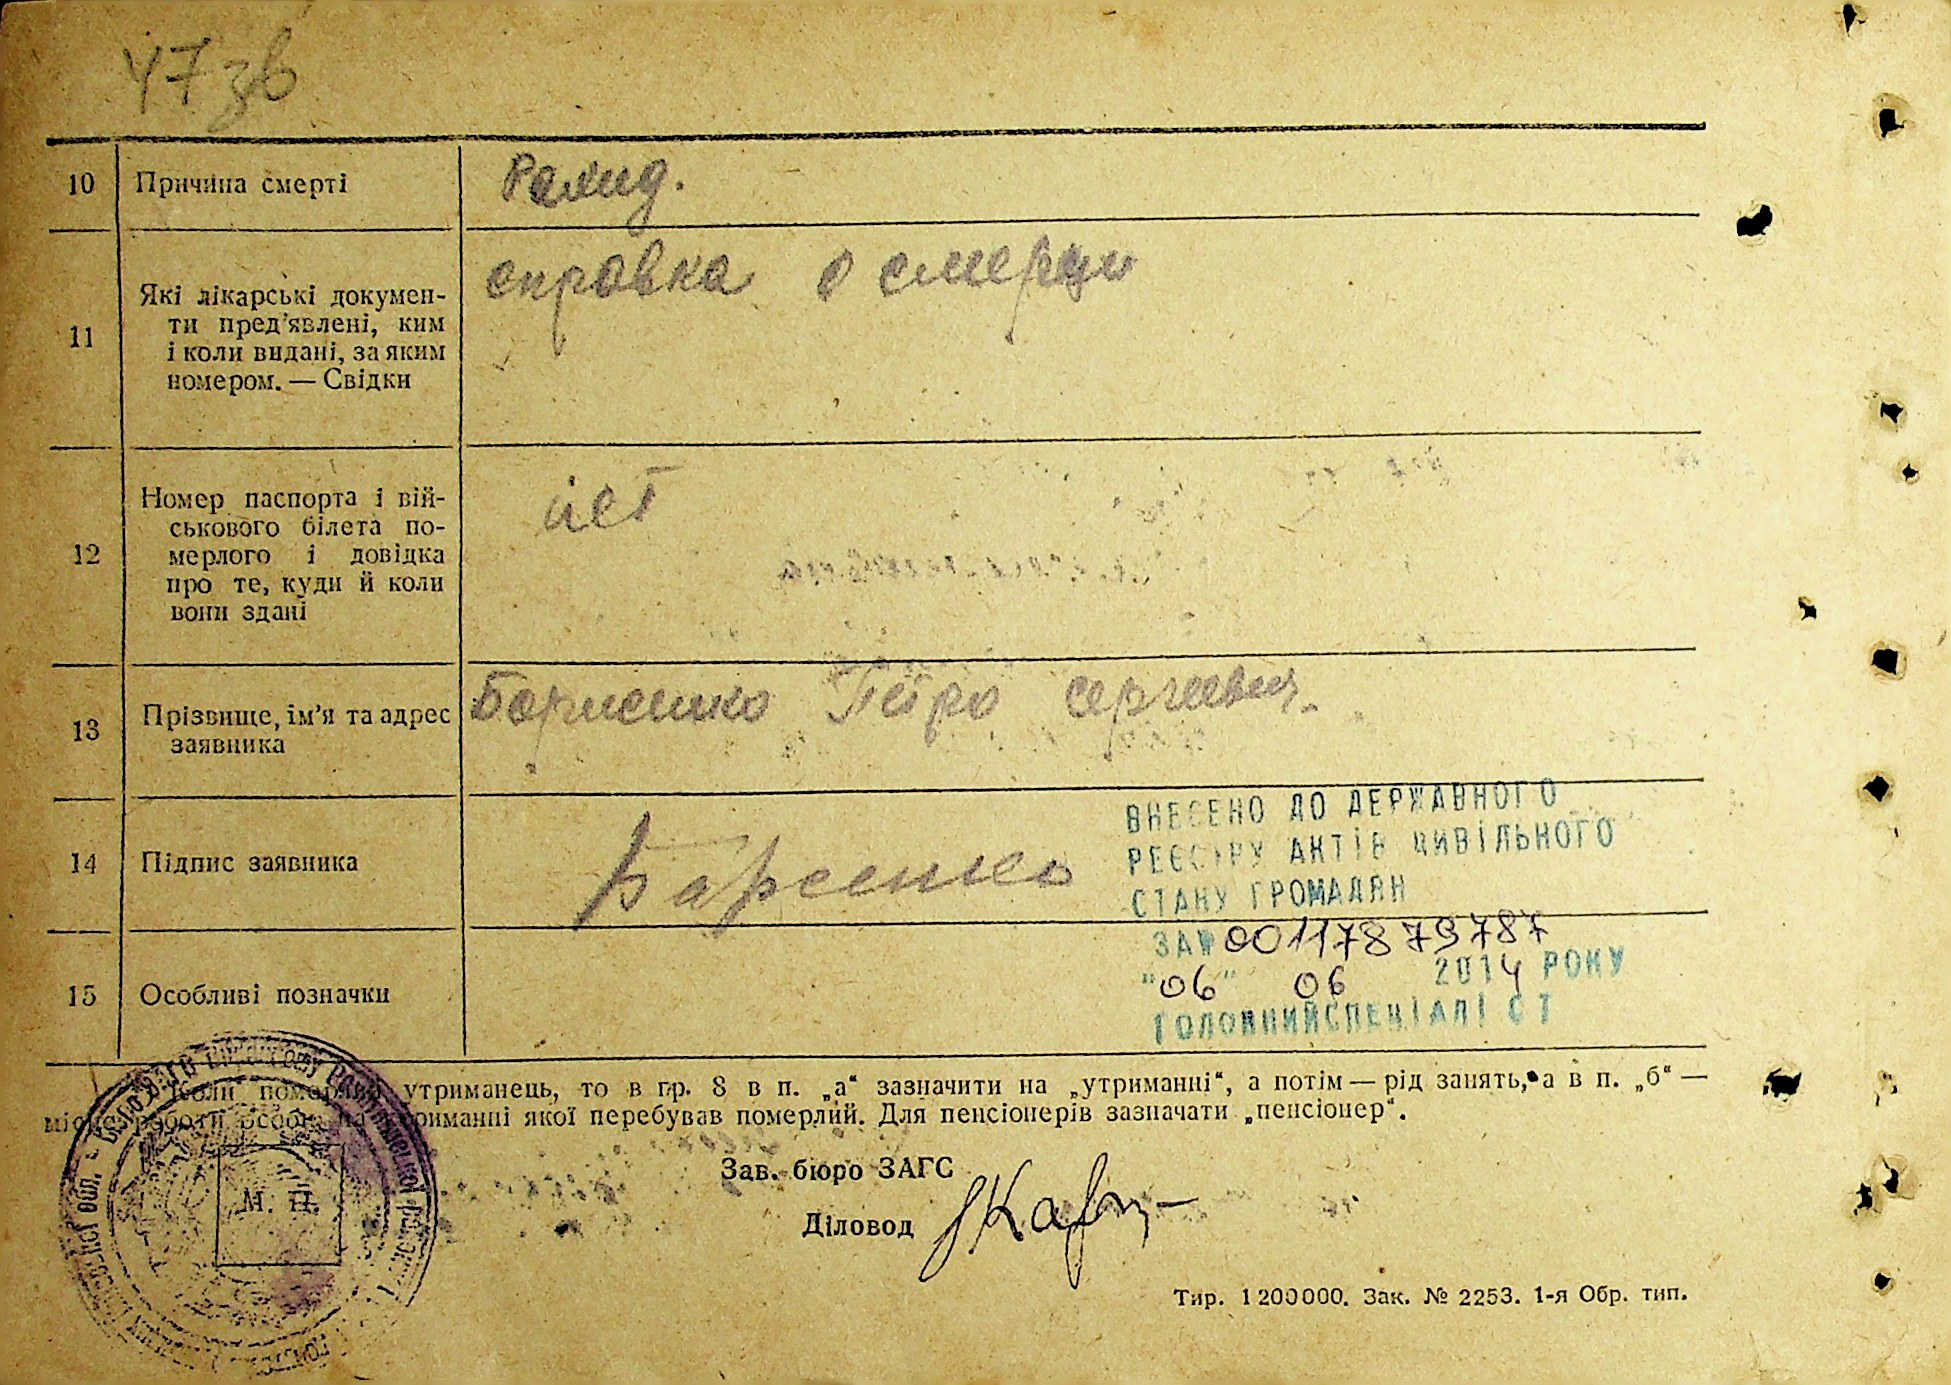 47 зв
10 Причина смерті Рахид.
справка о смерти
11 Які лікарські докумен-
ти пред'явлені, ким
і коли видані, за яким
номером. — Свідки
12 Номер паспорта і вій-
ськового білета по-
мерлого і довідка
про те, куди й коли
вони здані
нет
13 Прізвище, ім'я та адрес
заявника
Борисенко Петро Сергеевич
14 Підпис заявника
Борсенко
ВНЕСЕНО ДО ДЕРЖАВНОГО
РЕЄСТРУ АКТІВ ЦИВІЛЬНОГО
СТАНУ ГРОМАДЯН
ЗА № 00117879787
"06" 06 2014 РОКУ
ГОЛОВНИЙ СПЕЦІАЛІСТ
15 Особливі позначки
Коли померлий утриманець, то в гр. 8 в п. „а“ зазначити на „утриманні“, а потім — рід занять, а в п. „б“ —
місце роботи особи, на утриманні якої перебував померлий. Для пенсіонерів зазначати „пенсіонер“.
М. П.
Зав. бюро ЗАГС
Діловод
Тир. 1200000. Зак. № 2253. 1-я Обр. тип.